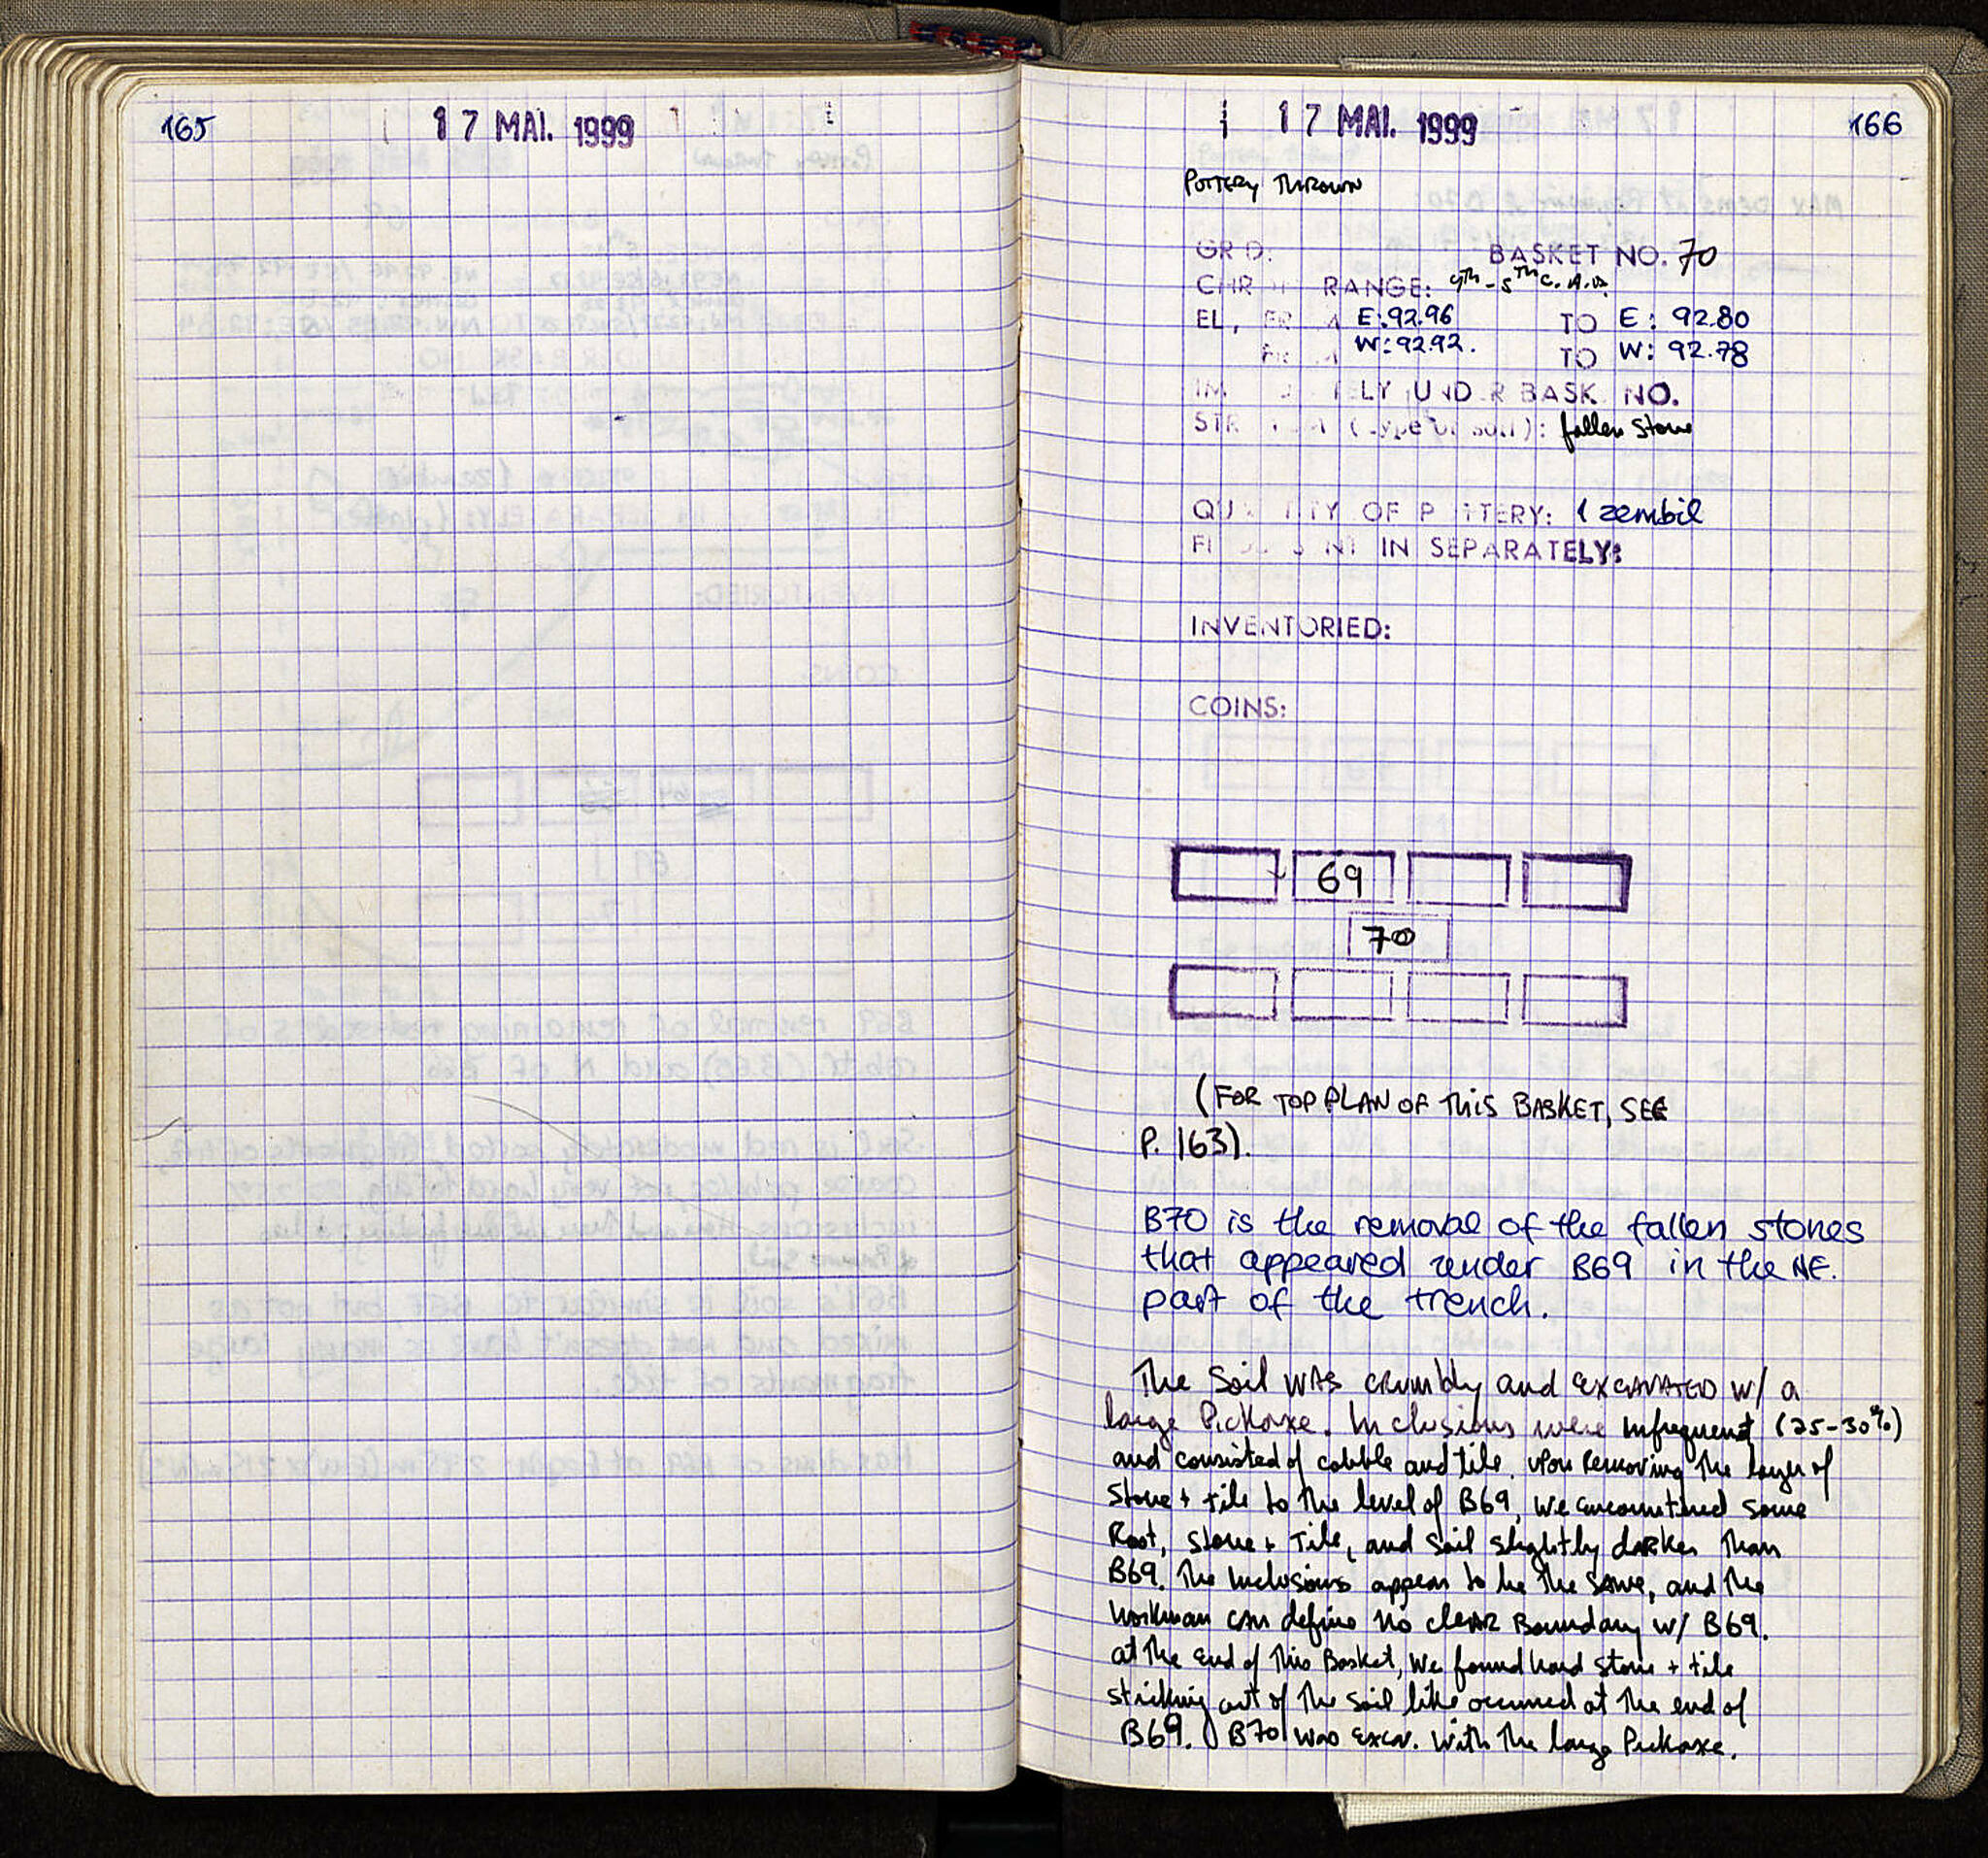 165
17 MAI. 1999
17 MAI. 1999
166
POTTERY THROWN
GRID: BASKET NO. 70
CHR RANGE: 4th-5th C. A.D.
EL, FR M E: 92.96 TO E: 92.80
FR M W: 92.92. TO W: 92.78
IM ELY UND R BASK NO.
STR M (Type of soil): fallen stone
QU TITY OF P TTERY: 1 zembil
FI S NT IN SEPARATELY:
INVENTORIED:
COINS:
69
70
(FOR TOP PLAN OF THIS BASKET, SEE
P. 163).
B70 is the removal of the fallen stones
that appeared under B69 in the NE.
part of the trench.
The Soil WAS crumbly and EXCAVATED w/ a
large Pickaxe. Inclusions were infrequent (25-30%)
and consisted of cobble and tile. Upon Removing the layer of
Stone + tile to the level of B69, we encountered some
Root, Stone + Tile, and Soil slightly darker than
B69. The Inclusions appear to be the same, and the
workman can define no clear Boundary w/ B69.
at the end of this Basket, we found hard stone + tile
sticking out of the soil like occurred at the end of
B69. B70 was excav. with the large Pickaxe.